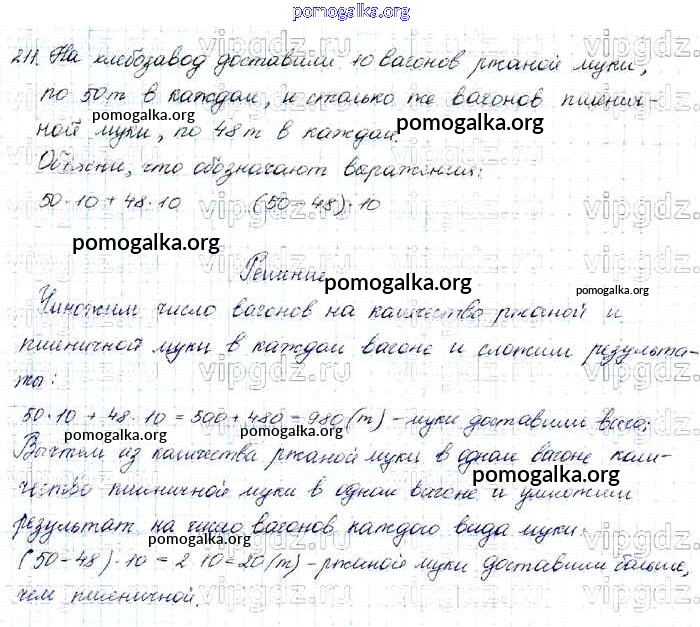 pomogalka.org
211. На хлебозавод доставили 10 вагонов ржаной муки,
по 50т в каждом, и столько же вагонов пшенич-
ной муки, по 48т в каждом.
pomogalka.org
Объясни, что обозначают выражения:
50·10 + 48·10 (50-48)·10
pomogalka.org
Решение
pomogalka.org
pomogalka.org
Умножим число вагонов на количество ржаной и
пшеничной муки в каждом вагоне и сложим результа-
ты:
50·10 + 48·10 = 500 + 480 = 980 (т) - муки доставили всего;
pomogalka.org
pomogalka.org
Вычтем из количества ржаной муки в одном вагоне коли-
чество пшеничной муки в одном вагоне и умножим
pomogalka.org
результат на число вагонов каждого вида муки.
pomogalka.org
(50-48)·10 = 2·10 = 20 (т) - ржаной муки доставили больше,
чем пшеничной.
pomogalka.org
vipgdz.com